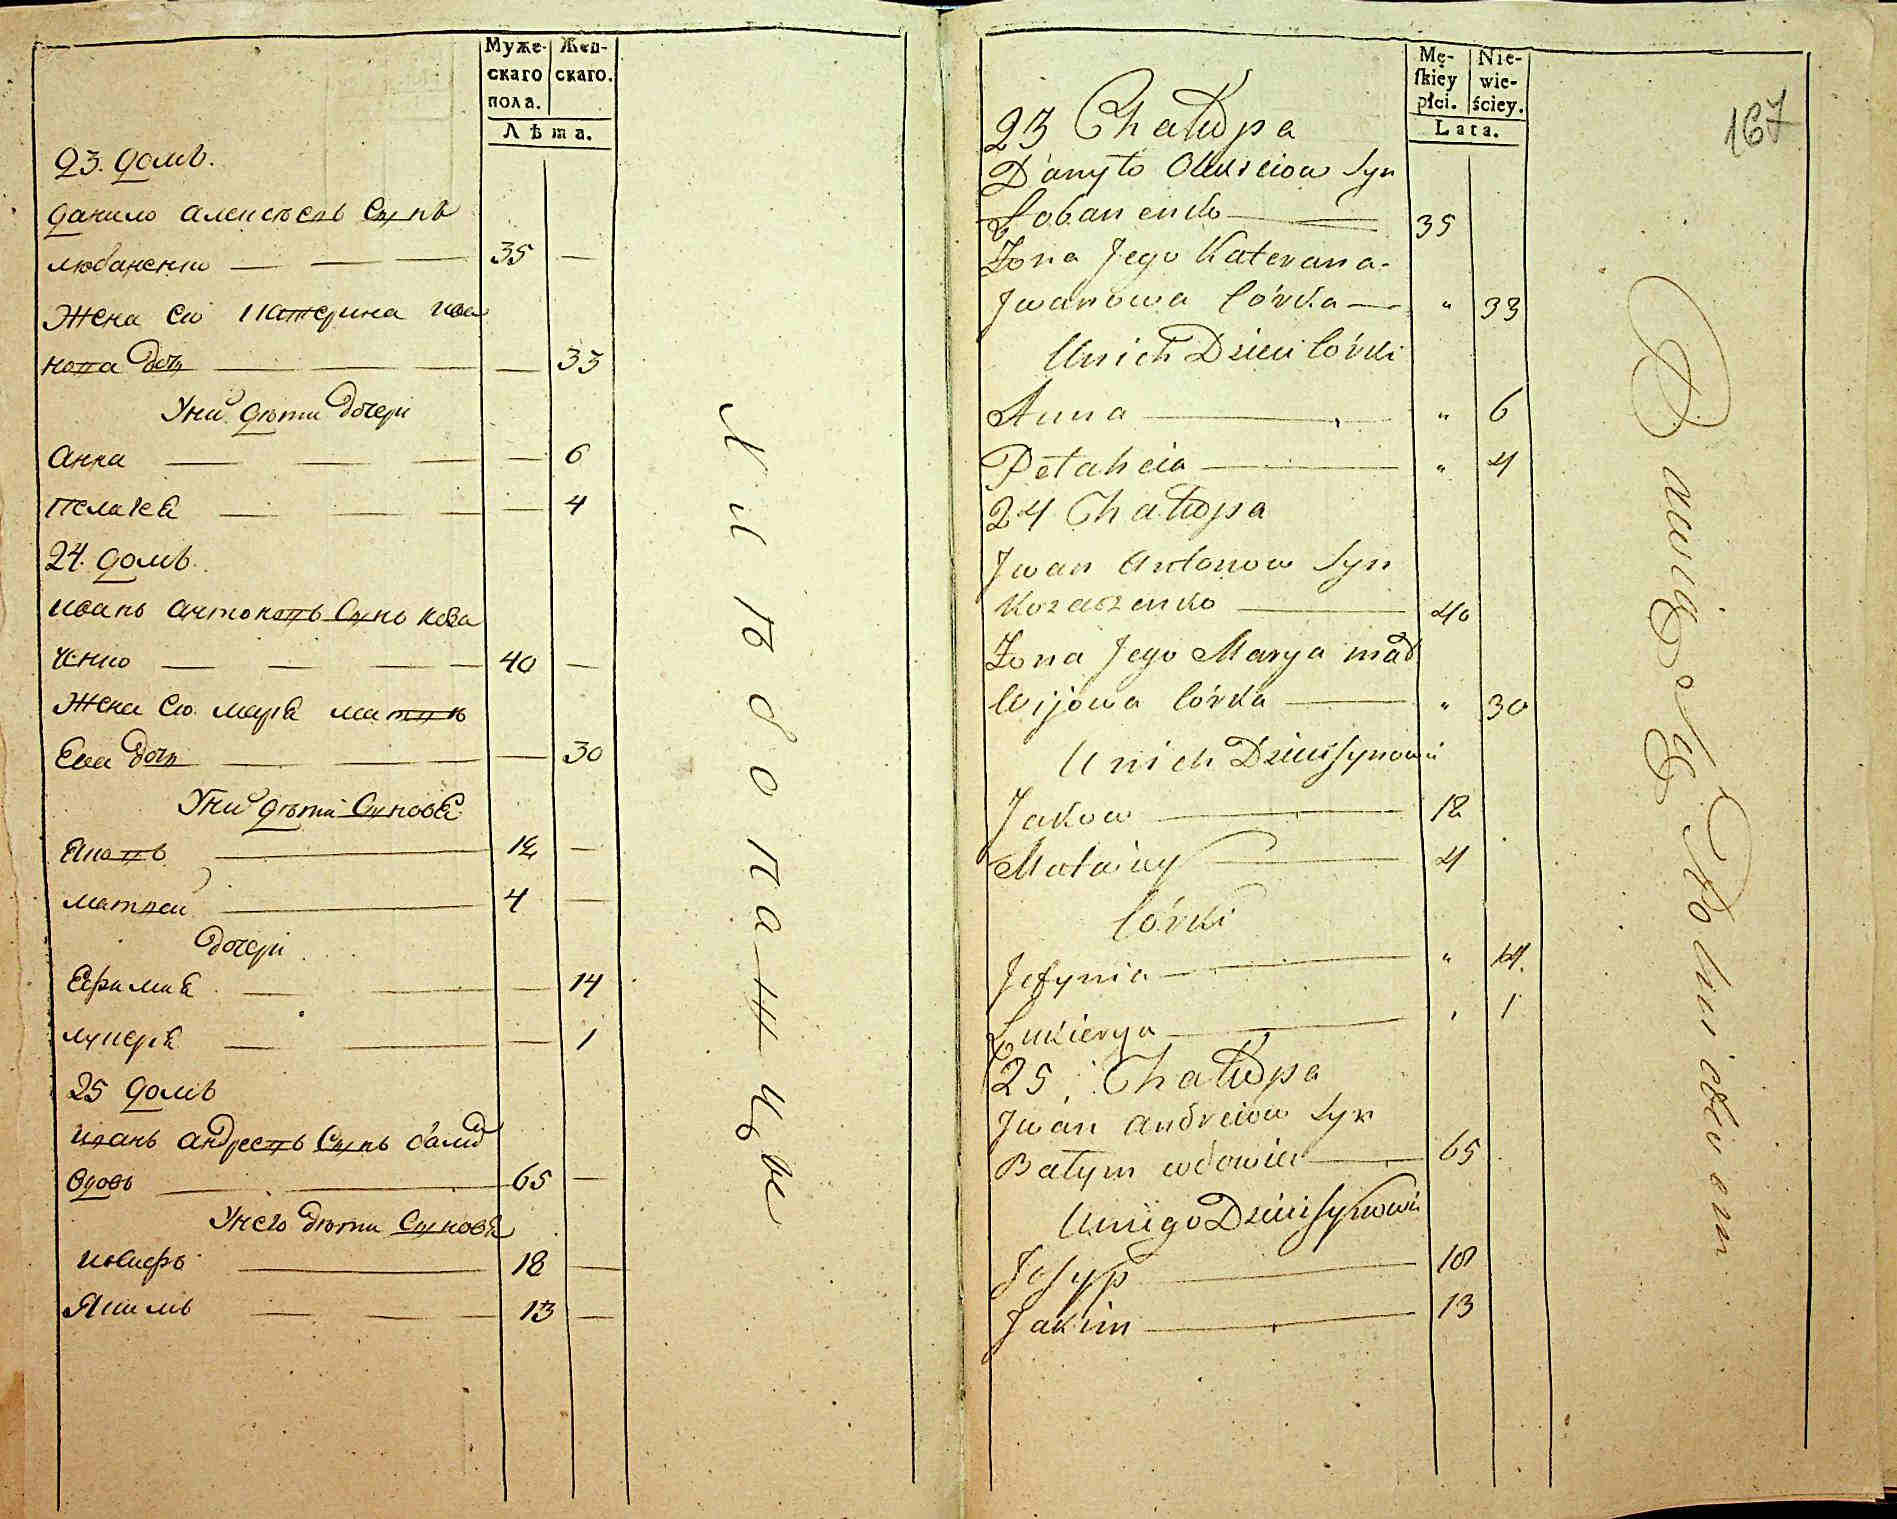 Муже-
скаго
пола.
Жен-
скаго.
Лѣта.
23. домъ.
данило алексѣевъ Сынъ
любаненко
35
Жена его Катерина ива
нова дочь
33
У ни дѣти дочери
Анна
6
Пелагея
4
24. домъ.
иванъ антоновъ Сынъ коза
ченко
40
Жена его маря матвѣ
Ева дочь
30
У ни дѣти Сыновя
Яковъ
12
матвей
4
дочери
Ефимия
14
лукеря
1
25 домъ
иванъ андреевъ Сынъ балим
вдовъ
65
У него дѣти Сыновя
иосифъ
18
Якимъ
13
Mę-
skiey
płci.
Nie-
wie-
ściey.
Lata.
167
23 Chałupa
Danyło Olexeiow Syn
Lobanenko
35
Żona Jego Kateryna
Jwanowa Córka
" 33
U nich Dzieci Córki
Anna
" 6
Pełaheia
" 4
24 Chałupa
Jwan Antonow Syn
Kozaczenko
40
Żona Jego Marya mad
wijowa Córka
" 30
U nich Dzieci Synowie
Jakow
12
Matwiey
4
Córki
Jefymia
" 14.
Łukierya
" 1
25 Chałupa
Jwan Andreiow Syn
Bałym wdowiec
65
U niego Dzieci Synowie
Josyp
18
Jakim
13